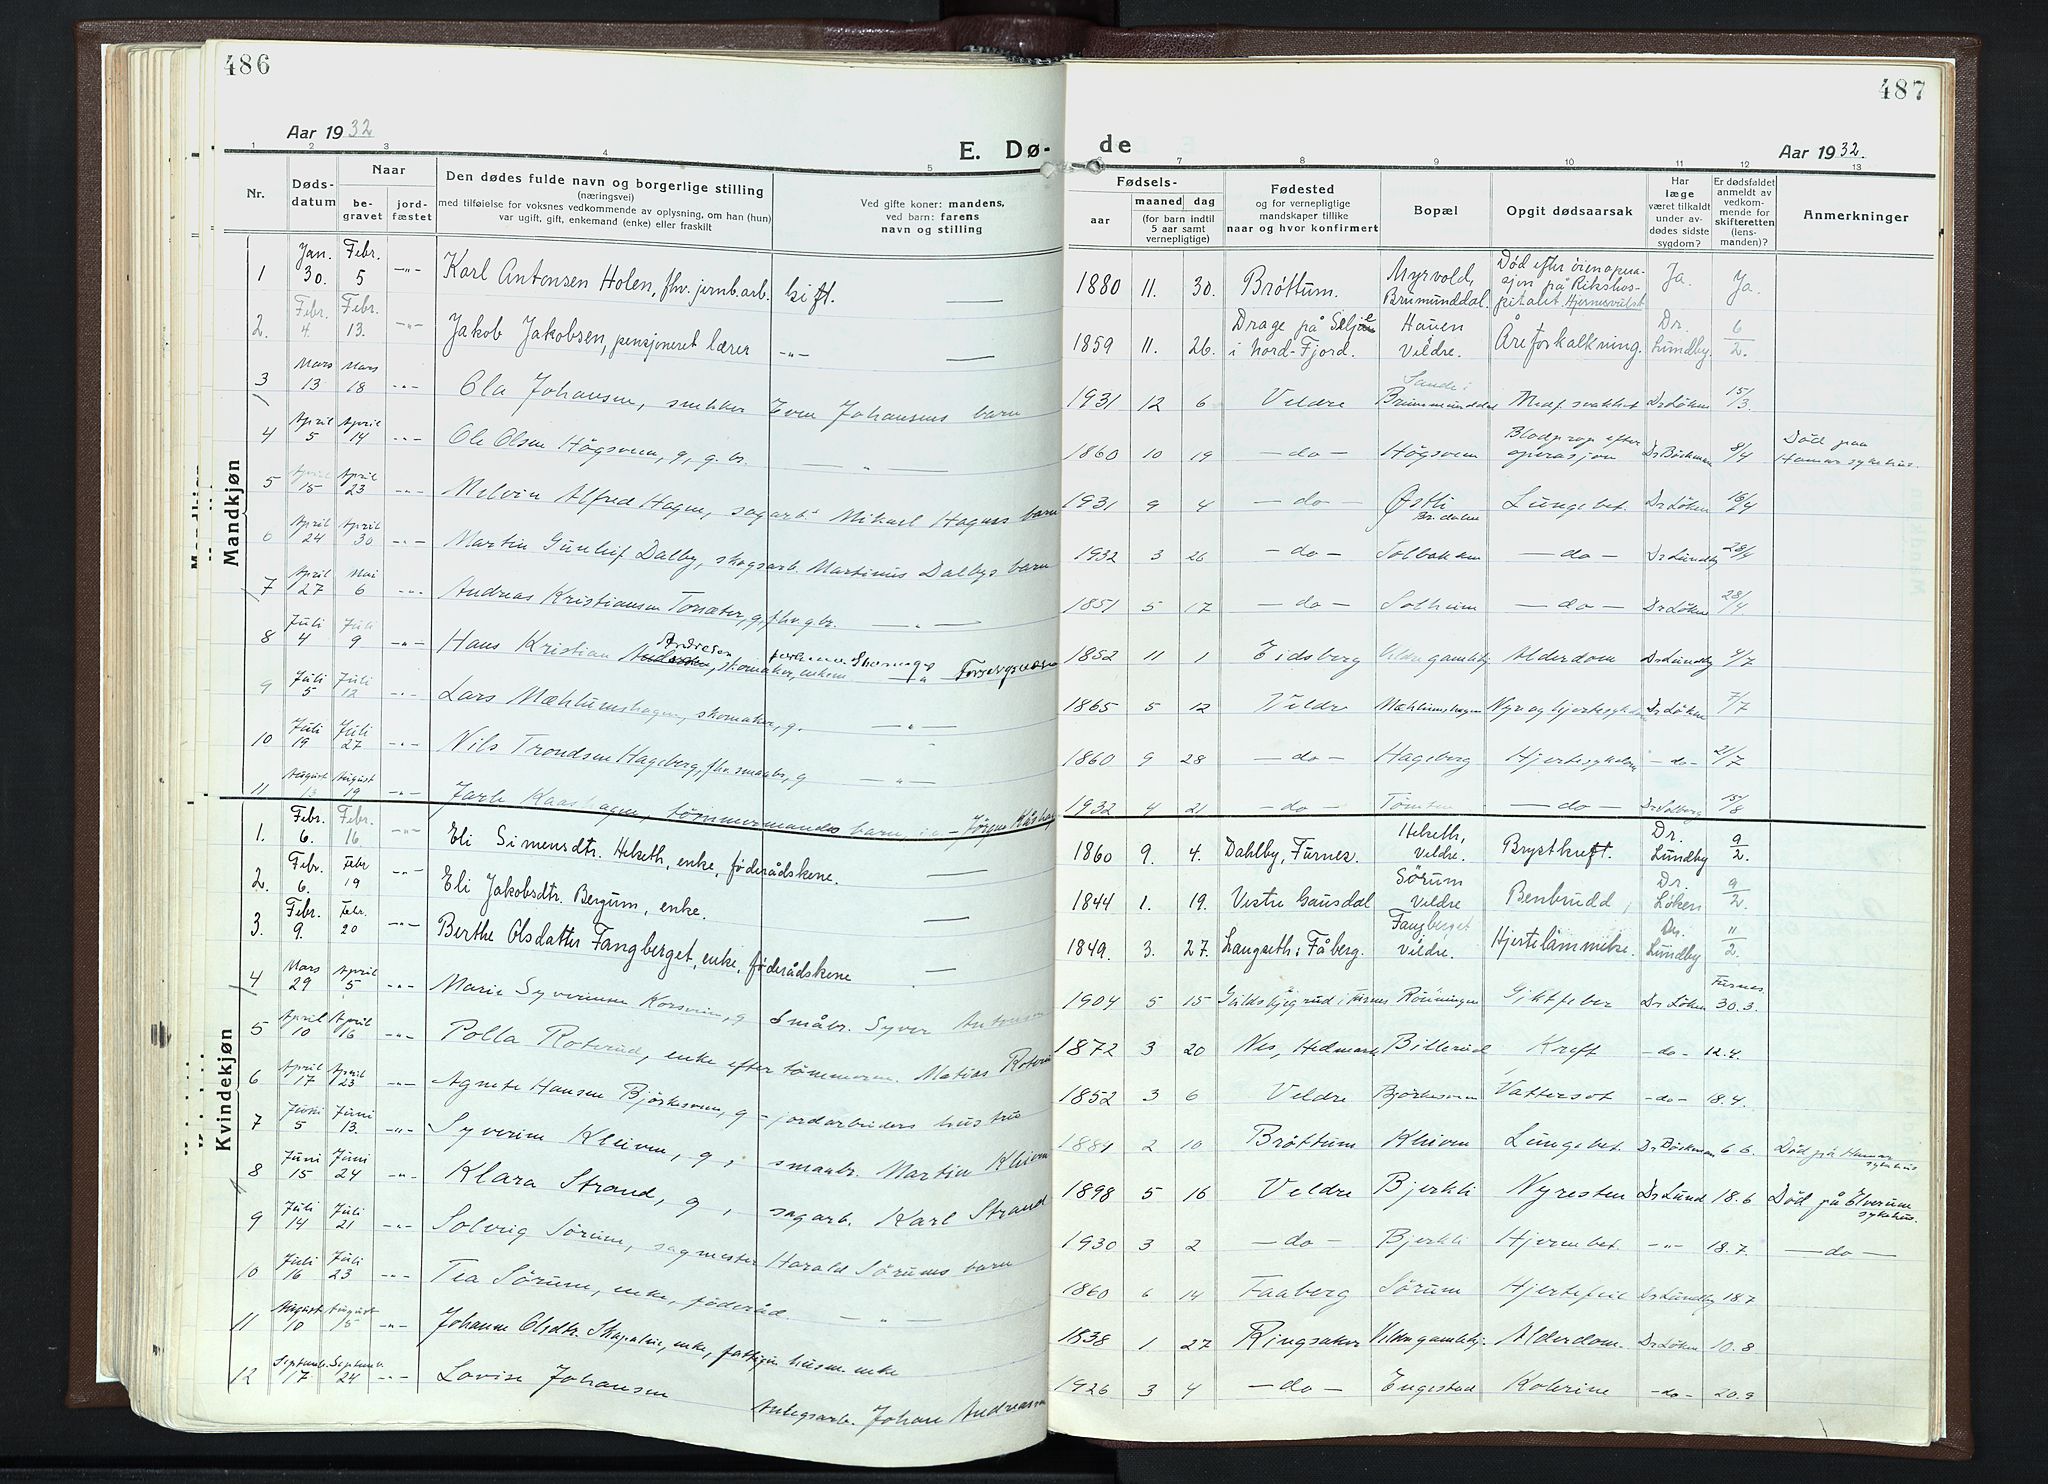 486
Aar 1932
E. Dø-
1 2 3 4 5
Nr.
Døds-
datum
Naar
be-
gravet
jord-
fæstet
Den dødes fulde navn og borgerlige stilling
(næringsvei)
med tilføielse for voksnes vedkommende av oplysning, om han (hun)
var ugift, gift, enkemand (enke) eller fraskilt
Ved gifte koner: mandens,
ved barn: farens
navn og stilling
Mandkjøn
1 Jan. 30. Febr. 5 -"- Karl Antonsen Holen, fhv. jernb.arb. Gift.
2. Febr. 4 Febr. 13. -"- Jakob Jakobsen, pensjoneret lærer -"-
3 Mars 13 Mars 18 -"- Ola Johansen, snekker Even Johansens barn
4 April 5 April 14 -"- Ole Olsen Högsveen, g, g.br. — " —
5 April 15 April 23 -"- Melvin Alfred Hagen, sagarb. Mikael Hagens barn
6 April 24 April 30 -"- Martin Gunleif Dalby, skogsarb. Martinus Dalbys barn
7 April 27 Mai 6 -"- Andreas Kristiansen Torsæter, g, fhv. g.br. — " —
8 Juli 4 Juli 9 -"- Hans Kristian Andresen, skomaker, enkem — " —
9 Juli 5 Juli 12 -"- Lars Mæhlumshagen, skomaker, g. — " —
10 Juli 19 Juli 27 -"- Nils Trondsen Hageberg, fhv. smaabr, g — " —
11 August 13 August 19 -"- Jarle Kaashagen, tømmermands barn,
Kvindekjøn
1. Febr. 6. Febr. 16 -"- Eli Simensdtr. Helseth, enke, føderådskone.
2. Febr. 6. Febr 19 -"- Eli Jakobsdtr. Bergum, enke.
3. Febr. 9. Febr. 20 -"- Berthe Olsdatter Fangberget, enke, føderådskone
4 Mars 29 April 5 -"- Marie Syverinne Korsveen, g Småbr. Syver Antonsen
5 April 10 April 16 -"- Polla Roterud, enke efter tømmerm. Matias Roterud
6 April 17 April 23 -"- Agnete Hansen Björkesveen, g - jordarbeiders hustru
7 Juni 5 Juni 13. -"- Syverine Kleiven, g, smaabr. Martin Kleiven
8 Juni 15 Juni 24 -"- Klara Strand, g, sagarb. Karl Strand
9 Juli 14 Juli 21 -"- Solveig Sörum, sagmester Harald Sörums barn
10 Juli 16 Juli 23 -"- Tea Sörum, enke, föderåd. — " —
11 August 10 August 15 -"- Johanne Olsdtr. enke, husm. enke
12 Septembr. 17 Septembr. 24 -"- Lovise Johansen Anlegsarb. Johan Andreassen
487
de
Aar 1932.
6 7 8 9 10 11 12 13
Fødsels-
aar
maaned dag
(for barn indtil
5 aar samt
vernepligtige)
Fødested
og for vernepligtige
mandskaper tillike
naar og hvor konfirmert
Bopæl
Opgit dødsaarsak
Har
læge
været tilkaldt
under av-
dødes sidste
sygdom?
Er dødsfaldet
anmeldt av
vedkom-
mende for
skifteretten
(lens-
manden)?
Anmerkninger
1880 11. 30. Brøttum. Myrvold, Brumunddal. Død efter øienopera-sjon på Rikshos-pitalet. Hjernesvulst Ja. Ja.
1859 11. 26. Drage på Selje i Nord-Fjord. Hauen Veldre. Åreforkalkning. Dr. Lundby 6/2.
1931 12 6 Veldre Sande i Brummunddal Medf. svakhet Dr Løken 15/3.
1860 10 19 — do — Högsveen Blodprop efter operasjon Dr Böckman 8/4 Död paa Hamar sykehus.
1931 9 4 — do — Østli Br.dalen Lungebet. Dr Löken 16/4
1932 3 26 — do — Solbakken — do — Dr Lundby 28/4
1851 5 17 — do — Solheim — do — Dr Löken 28/4
1852 11 1 Eidsberg Veldre gamleh. Alderdom Dr Lundby 4/7
1865 5 12 Veldre Mæhlumshagen Nyre og hjertesykdom Dr Löken 7/7
1860 9 28 — do — Hageberg Hjertesykdom — do — 21/7
1932 4 21 — do — Tömten — do — Dr Solberg 15/8
1860 9. 4. Dahlby, Furnes. Helseth, Veldre. Brystkreft. Dr. Lundby 9/2.
1844 1. 19. Vestre Gausdal Sørum Veldre Benbrudd, Dr. Løken 9/2.
1849. 3. 27. Langseth i Fåberg. Fangberget Veldre. Hjertelammelse. Dr. Lundby 11/2.
1904 5 15 i Furnes Rönningen Giktfeber Dr Löken Furnes 30.3.
1872 3 20 Nes, Hedmark Billerud Kreft — do — 12.4.
1852 3 6 Veldre Björkesveen Vattersot — do — 18.4.
1884 2 10 Bröttum Kleiven Lungebet. Dr Böckman 6.6. Död på Hamar sykehus
1898 5 16 Veldre Bjerkli Nyresten Dr Lund 18.6 Död på Elverum sykehus.
1930 3 2 — do — Bjerkli Hjernebet. — " — 18.7. — do —
1860 6 14 Faaberg Sörum Hjertefeil Dr Lundby 18.7
1838 1 27 Ringsaker Veldre gamleh. Alderdom. Dr Löken 10.8
1926 3 4 — do — Engestad Kolerine — do — 20.9